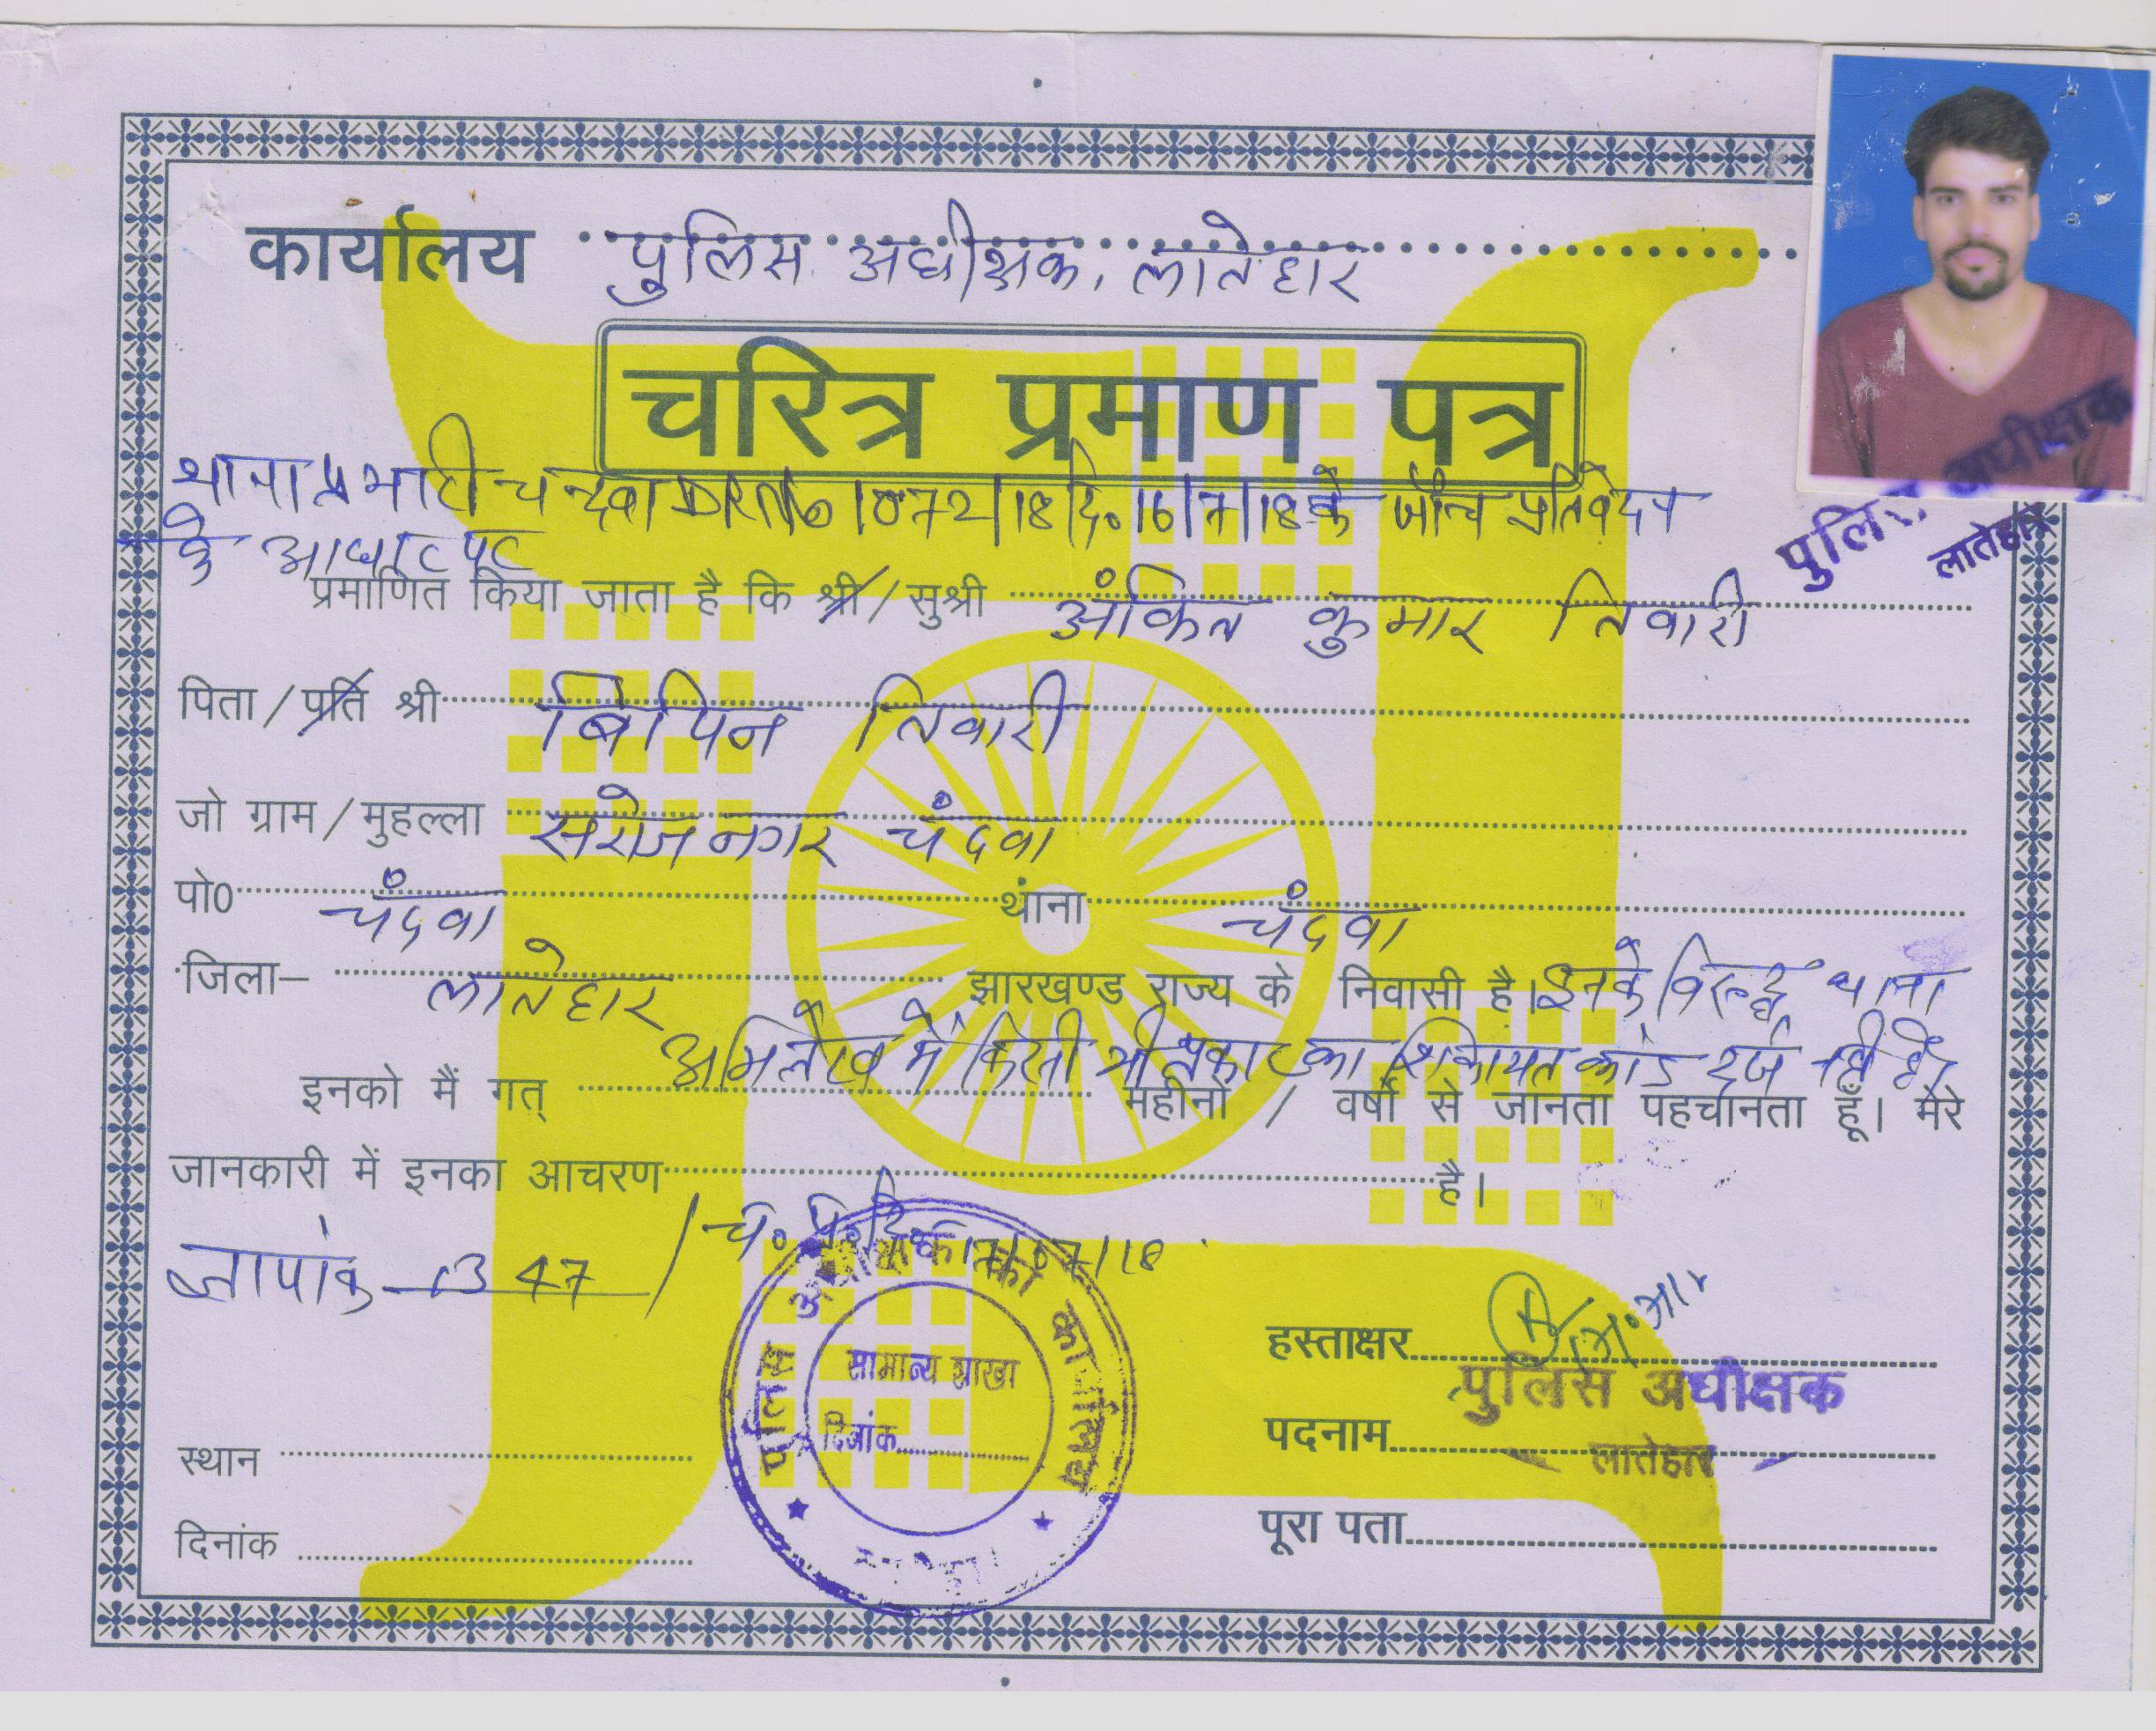 कार्यालय पुलिस अधीक्षक, लातेहार
चरित्र प्रमाण पत्र
थाना प्रभारी चन्दवा DR No 1072/18 दि० 16/7/18 के जाँच प्रतिवेदन
के आधार पर
पुलिस अधीक्षक
लातेहार
प्रमाणित किया जाता है कि श्री / सुश्री अंकित कुमार तिवारी
पिता / पति श्री बिपिन तिवारी
जो ग्राम / मुहल्ला सरोज नगर चंदवा
पो0 चंदवा थांना चंदवा
जिला– लातेहार झारखण्ड राज्य के निवासी है। इनके विरूद्ध थाना
अभिलेख में किसी भी प्रकार का शिकायत कांड दर्ज नहीं है,
इनको मैं गत् महीनों / वर्षों से जानता पहचानता हूँ। मेरे
जानकारी में इनका आचरण है।
ज्ञापांक 1347 / च०
पुलिस अधीक्षक का कार्यालय
सामान्य शाखा
दिनांक
हस्ताक्षर
पुलिस अधीक्षक
पदनाम लातेहार
स्थान
पूरा पता
दिनांक